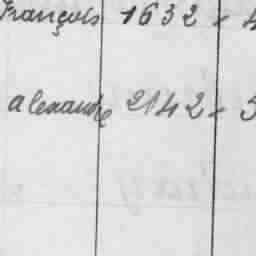 François 1632 - 4
alexandre 2142 - 5